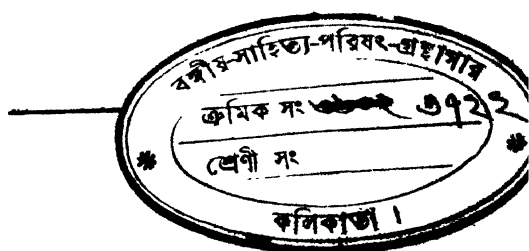 বঙ্গীয়-সাহিত্য-পরিষৎ-গ্রন্থাগার
ক্রমিক সং ৩৭২২
শ্রেণী সং
কলিকাতা ।